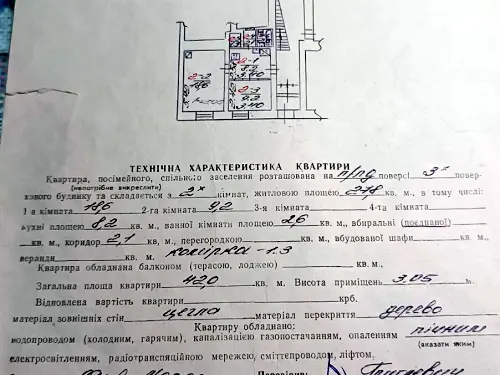 2-2
18,6
2-1
8,2
3.40
2-3
9.2
3.40
ТЕХНІЧНА ХАРАКТЕРИСТИКА КВАРТИРИ
Квартира, посімейного, спільного заселення розташована на п/пд поверсі 3х повер-
(непотрібне викреслити)
хового будинку та складається з 2х кімнат, житловою площею 27,8 кв. м., в тому числі:
1-а кімната 18,6 2-га кімната 9,2 3-я кімната 4-та кімната
кухні площею 8,2 кв. м., ванної кімнати площею 2,6 кв. м., вбиральні (поєднаної)
кв. м., коридор 2,1 кв. м., перегородкою кв. м., вбудованої шафи кв. м.,
веранди кв. м. комірка - 1.3
Квартира обладнана балконом (терасою, лоджею) кв. м.,
Загальна площа квартири 42,0 кв. м. Висота приміщень 3.05 м.
Відновлена вартість квартири крб.
матеріал зовнішніх стін цегла матеріал перекриття дерево
Квартиру обладнано:
водопроводом (холодним, гарячим), каналізацією газопостачанням, опаленням пічним
(вказати яким)
електроосвітленням, радіотрансляційною мережею, сміттєпроводом, ліфтом.